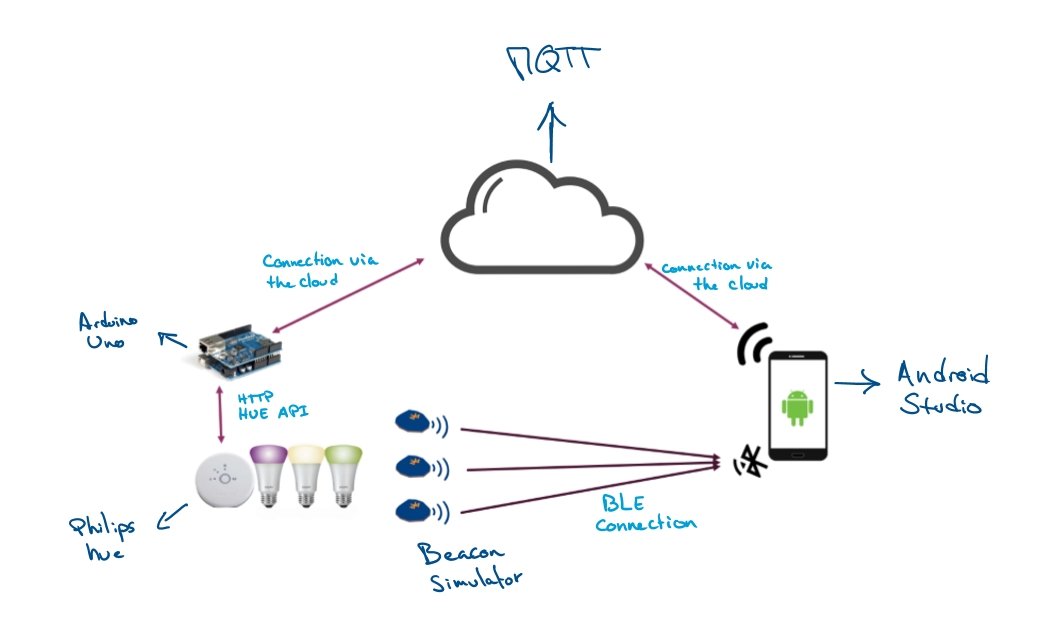 MQTT
Connection via
the cloud
Connection via
the cloud
Arduino
Uno
HTTP
HUE API
Android
Studio
Philips
hue
BLE
Connection
Beacon
Simulator